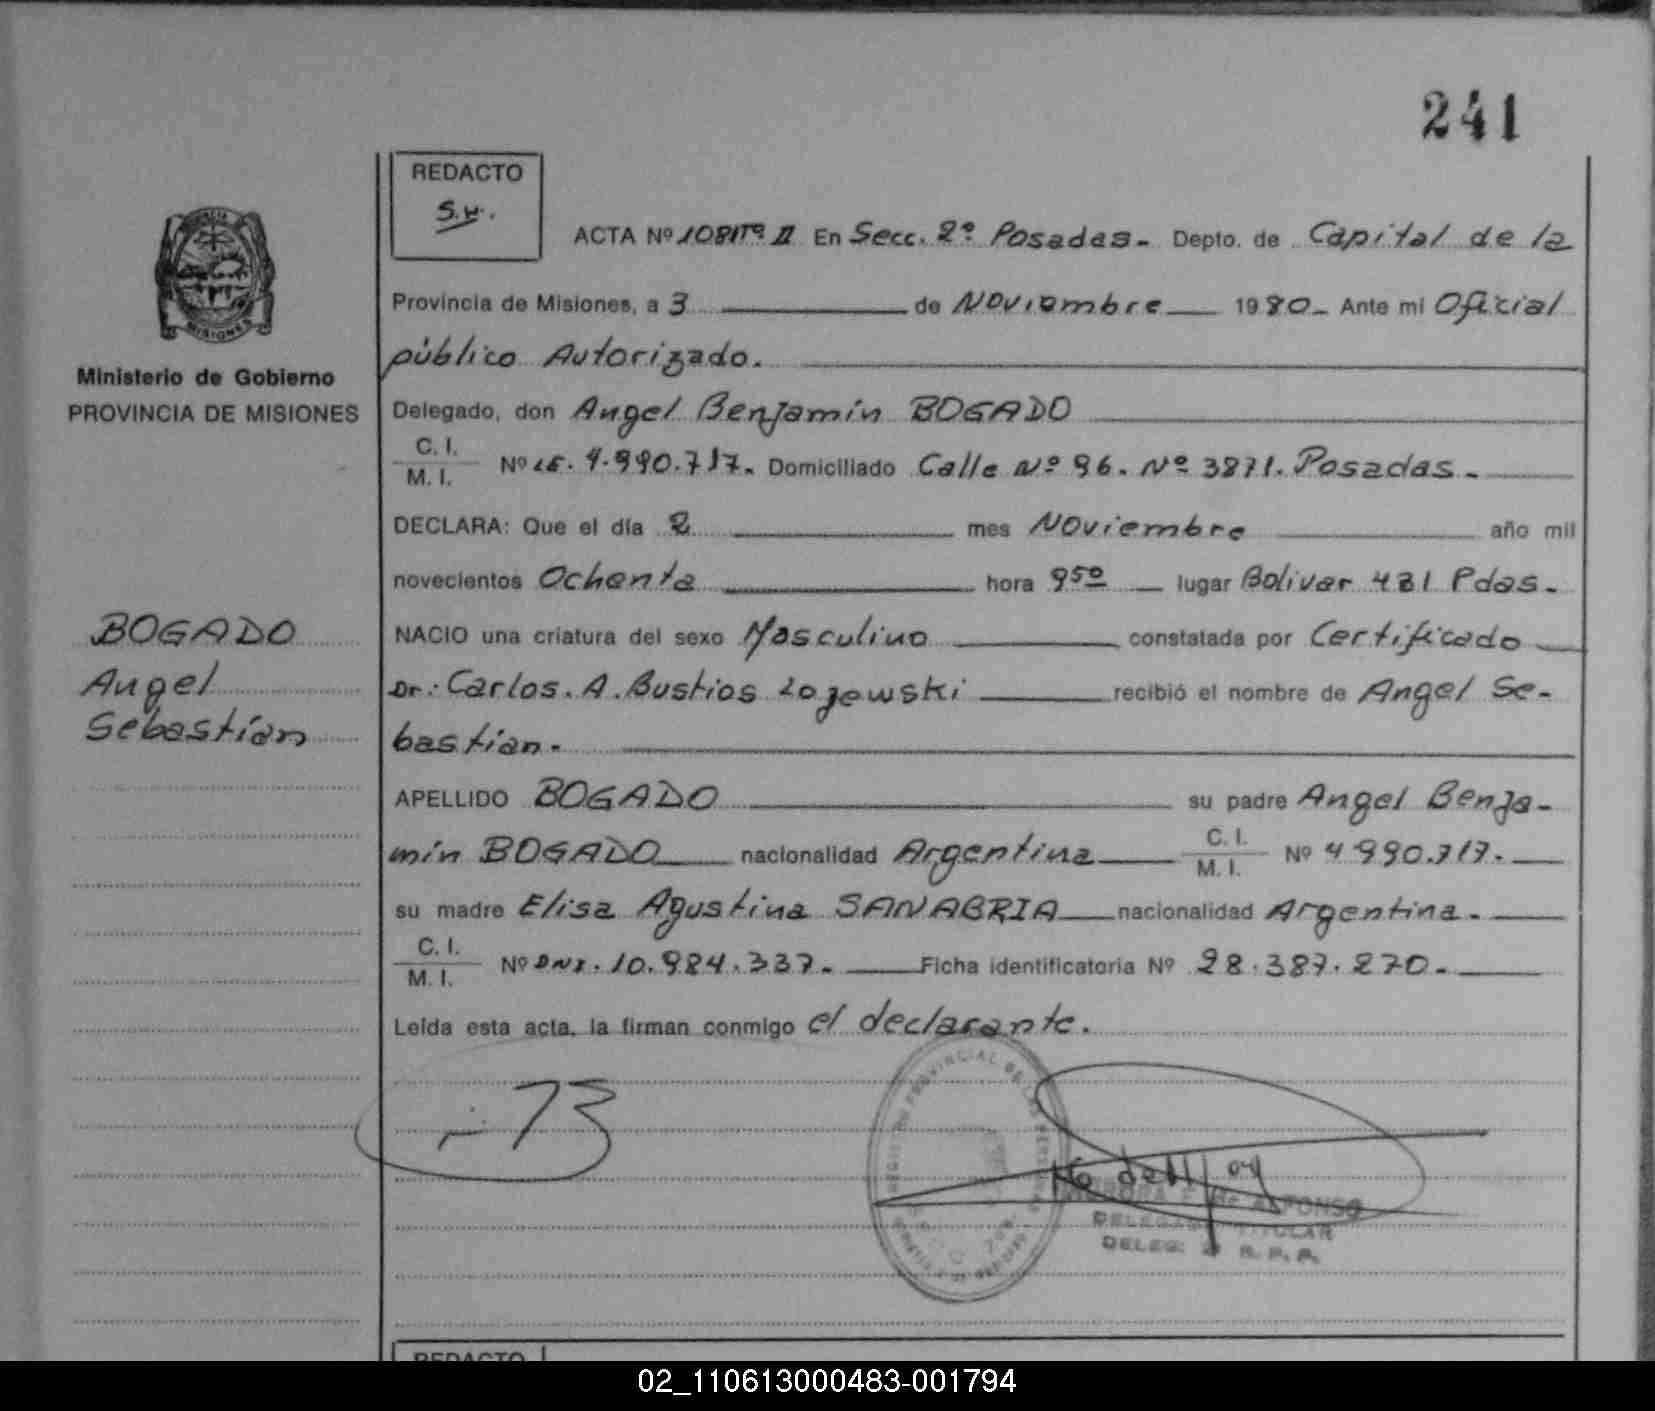 241
REDACTO
S.H.
ACTA Nº 1081 Tº II En Secc. 2º Posadas. Depto. de Capital de la
MISIONES
Provincia de Misiones, a 3 de Noviembre 1980 Ante mi Oficial
público Autorizado.
Ministerio de Gobierno
PROVINCIA DE MISIONES
Delegado, don Angel Benjamín BOGADO
C. I.
M. I. Nº LE. 4.990.717. Domiciliado Calle Nº 96. Nº 3871. Posadas.
DECLARA: Que el día 2 mes Noviembre año mil
novecientos Ochenta hora 9 50 lugar Bolivar 431 Pdas.
BOGADO
Angel
Sebastián
NACIO una criatura del sexo Masculino constatada por Certificado
Dr: Carlos. A. Bustios recibió el nombre de Angel Se-
bastian.
APELLIDO BOGADO su padre Angel Benja-
mín BOGADO nacionalidad Argentina C. I.
M. I. Nº 4990.717.
su madre Elisa Agustina SANABRIA nacionalidad Argentina.
C. I.
M. I. Nº DNI. 10.984.337. Ficha identificatoria Nº 28.387.270.
Leída esta acta, la firman conmigo el declarante.
DELEG:
REDACTO
02_110613000483-001794